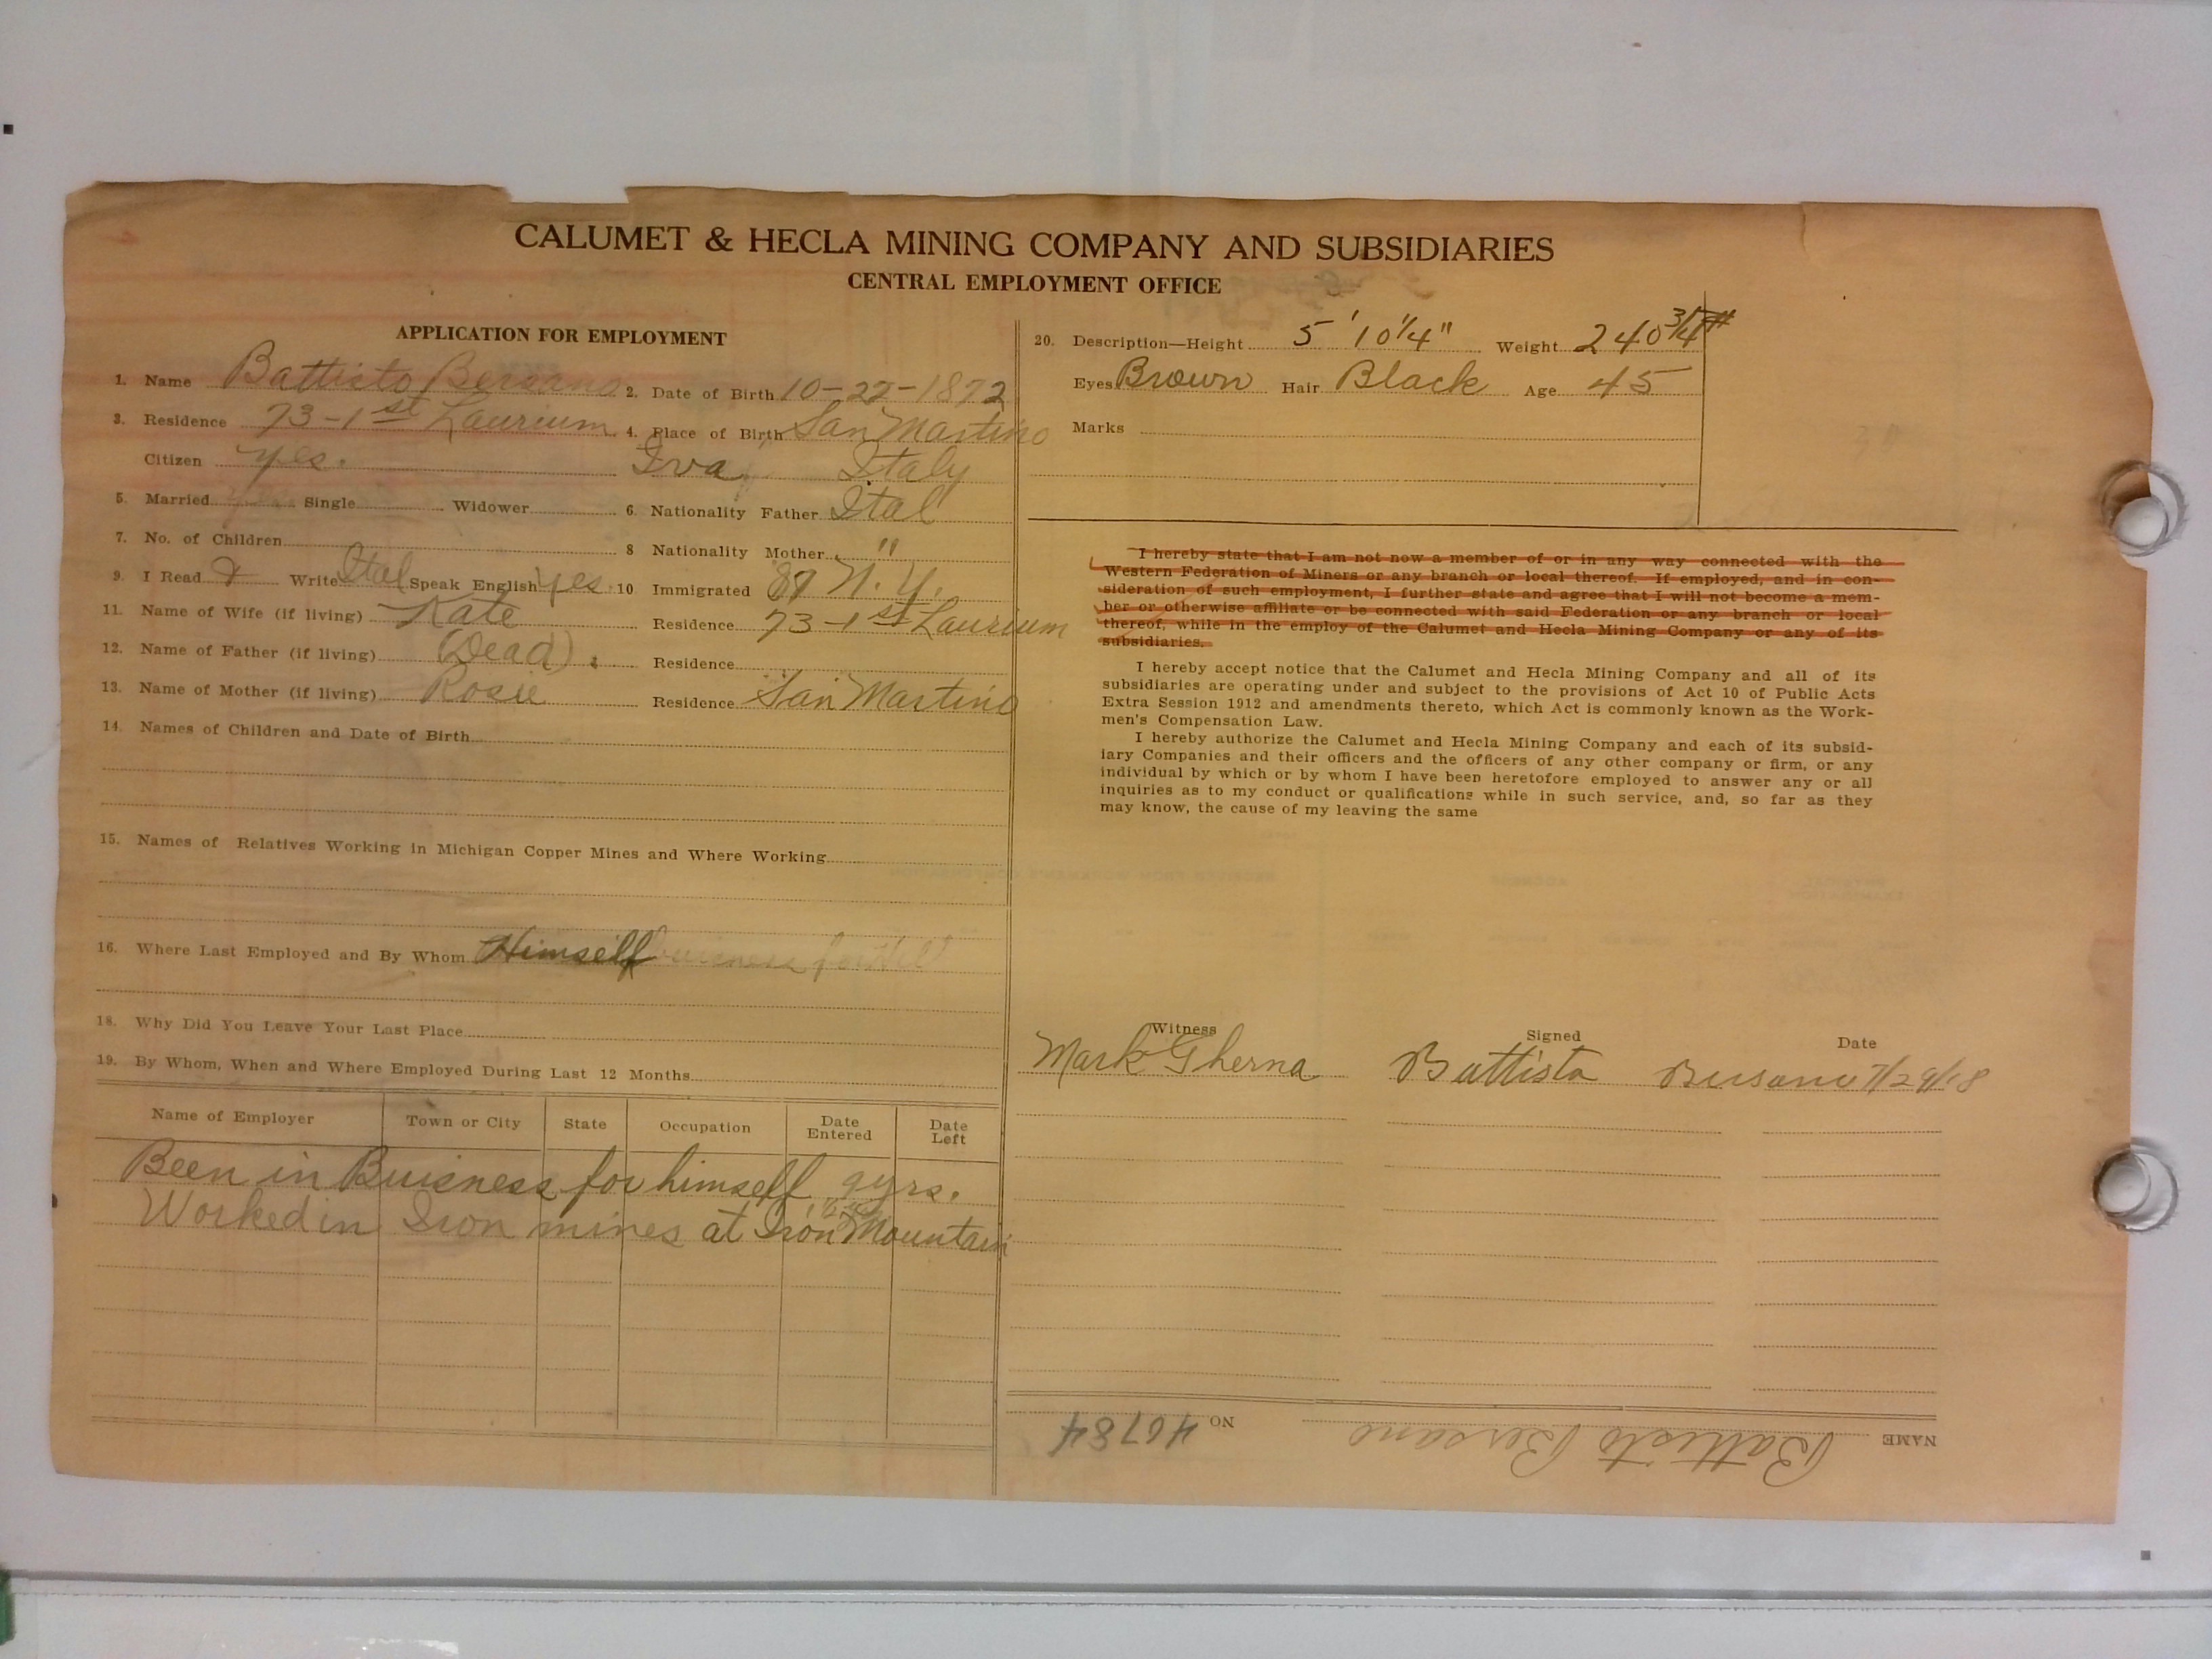 CALUMET & HECLA MINING COMPANY AND SUBSIDIARIES
CENTRAL EMPLOYMENT OFFICE
APPLICATION FOR EMPLOYMENT
1. Name Battisto Bersano 2. Date of Birth 10-22-1872
3. Residence 73-1st Laurium 4. Place of Birth San Martino
Citizen yes. Iva Italy
5. Married yes Single Widower 6. Nationality Father Ital
7. No. of Children 8 Nationality Mother "
9. I Read & Write Ital Speak English Yes 10 Immigrated 89 N.Y.
11. Name of Wife (if living) Kate Residence 73-1st Laurium
12. Name of Father (if living) (Dead) Residence
13. Name of Mother (if living) Rosie Residence San Martino
14. Names of Children and Date of Birth
15. Names of Relatives Working in Michigan Copper Mines and Where Working
16. Where Last Employed and By Whom Himself
18. Why Did You Leave Your Last Place
19. By Whom, When and Where Employed During Last 12 Months
Name of Employer Town or City State Occupation Date Entered Date Left
Been in Buisness for himself 9 yrs.
Worked in Iron mines at Iron Mountain
20. Description—Height 5' 10 1/4" Weight 240 3/4 #
Eyes Brown Hair Black Age 45
Marks
I hereby state that I am not now a member of or in any way connected with the
Western Federation of Miners or any branch or local thereof. If employed, and in con-
sideration of such employment, I further state and agree that I will not become a mem-
ber or otherwise affiliate or be connected with said Federation or any branch or local
thereof, while in the employ of the Calumet and Hecla Mining Company or any of its
subsidiaries.
I hereby accept notice that the Calumet and Hecla Mining Company and all of its
subsidiaries are operating under and subject to the provisions of Act 10 of Public Acts
Extra Session 1912 and amendments thereto, which Act is commonly known as the Work-
men's Compensation Law.
I hereby authorize the Calumet and Hecla Mining Company and each of its subsid-
iary Companies and their officers and the officers of any other company or firm, or any
individual by which or by whom I have been heretofore employed to answer any or all
inquiries as to my conduct or qualifications while in such service, and, so far as they
may know, the cause of my leaving the same
Witness Signed Date
Mark Gherna Battista Bersano 7/29/18
NAME Battisto Bersano NO 46784